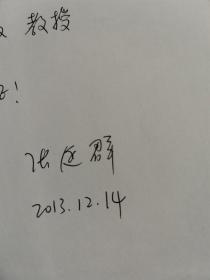 教授
!
张廷群
2013.12.14